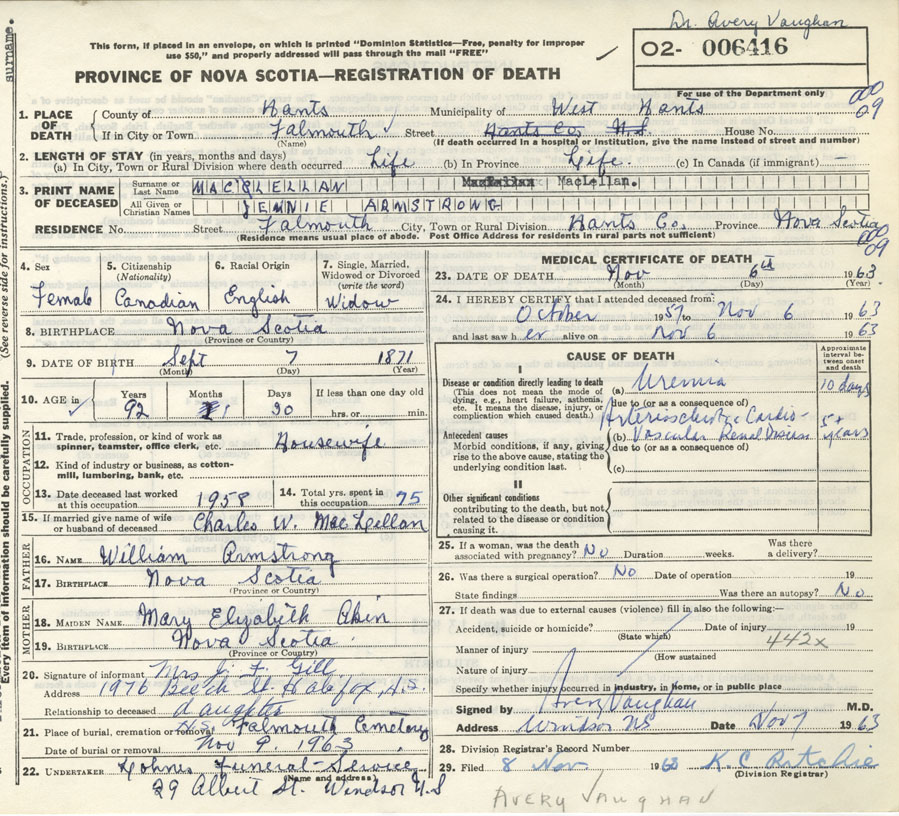 Dr. Avery Vaughan
surname.
This form, if placed in an envelope, on which is printed "Dominion Statistics—Free, penalty for improper
use $50," and properly addressed will pass through the mail "FREE"
02- 006416
PROVINCE OF NOVA SCOTIA—REGISTRATION OF DEATH
For use of the Department only
000
09
1. PLACE OF DEATH County of Hants Municipality of West Hants
If in City or Town Falmouth Street Hants Co. N.S. House No.
(Name) (If death occurred in a hospital or institution, give the name instead of street and number)
2. LENGTH OF STAY (in years, months and days)
(a) In City, Town or Rural Division where death occurred Life (b) In Province Life. (c) In Canada (if immigrant) —
3. PRINT NAME OF DECEASED Surname or Last Name MACLELLAN MacLellan.
All Given or Christian Names JENNIE ARMSTRONG
RESIDENCE No. Street Falmouth City, Town or Rural Division Hants Co. Province Nova Scotia
(Residence means usual place of abode. Post Office Address for residents in rural parts not sufficient)
000
09
(See reverse side for instructions.)
Every item of information should be carefully supplied.
4. Sex 5. Citizenship (Nationality) 6. Racial Origin 7. Single, Married, Widowed or Divorced (write the word)
Female Canadian English Widow
8. BIRTHPLACE Nova Scotia
(Province or Country)
9. DATE OF BIRTH Sept 7 1871
(Month) (Day) (Year)
10. AGE in Years Months Days If less than one day old
92 1 30 hrs. or min.
OCCUPATION
11. Trade, profession, or kind of work as spinner, teamster, office clerk, etc. Housewife
12. Kind of industry or business, as cotton-mill, lumbering, bank, etc.
13. Date deceased last worked at this occupation 1958 14. Total yrs. spent in this occupation 75
15. If married give name of wife or husband of deceased Charles W. MacLellan
FATHER
16. NAME William Armstrong
17. BIRTHPLACE Nova Scotia
(Province or Country)
MOTHER
18. MAIDEN NAME Mary Elizabeth Akin
19. BIRTHPLACE Nova Scotia
(Province or Country)
20. Signature of informant Mrs. Gill
Address 1976 Beech St. Halifax, N.S.
Relationship to deceased daughter
21. Place of burial, cremation or removal N.S. Falmouth Cemetery
Date of burial or removal Nov 9. 1963
22. UNDERTAKER Funeral Service
(Name and address)
29 Albert St. Windsor N S
MEDICAL CERTIFICATE OF DEATH
23. DATE OF DEATH Nov 6th 1963
(Month) (Day) (Year)
24. I HEREBY CERTIFY that I attended deceased from:
October 1957 to Nov 6 1963
and last saw her alive on Nov 6 1963
CAUSE OF DEATH
Approximate interval between onset and death
I
Disease or condition directly leading to death
(This does not mean the mode of dying, e.g., heart failure, asthenia, etc. It means the disease, injury, or complication which caused death.)
(a) Uremia 10 days
due to (or as a consequence of)
Arteriosclerotic Cardio-
Antecedent causes
Morbid conditions, if any, giving rise to the above cause, stating the underlying condition last.
(b) Vascular Renal Disease 5+ years
due to (or as a consequence of)
(c)
II
Other significant conditions
contributing to the death, but not related to the disease or condition causing it.
25. If a woman, was the death associated with pregnancy? No Duration weeks. Was there a delivery?
26. Was there a surgical operation? No Date of operation 19
State findings Was there an autopsy? No
27. If death was due to external causes (violence) fill in also the following:—
Accident, suicide or homicide? Date of injury 19
(State which)
442x
Manner of injury
(How sustained
Nature of injury
Specify whether injury occurred in industry, in home, or in public place
Signed by Avery Vaughan M.D.
Address Windsor NS Date Nov 7 1963
28. Division Registrar's Record Number
29. Filed 8 Nov. 1963 K.C Ritchie
(Division Registrar)
AVERY VAUGHAN